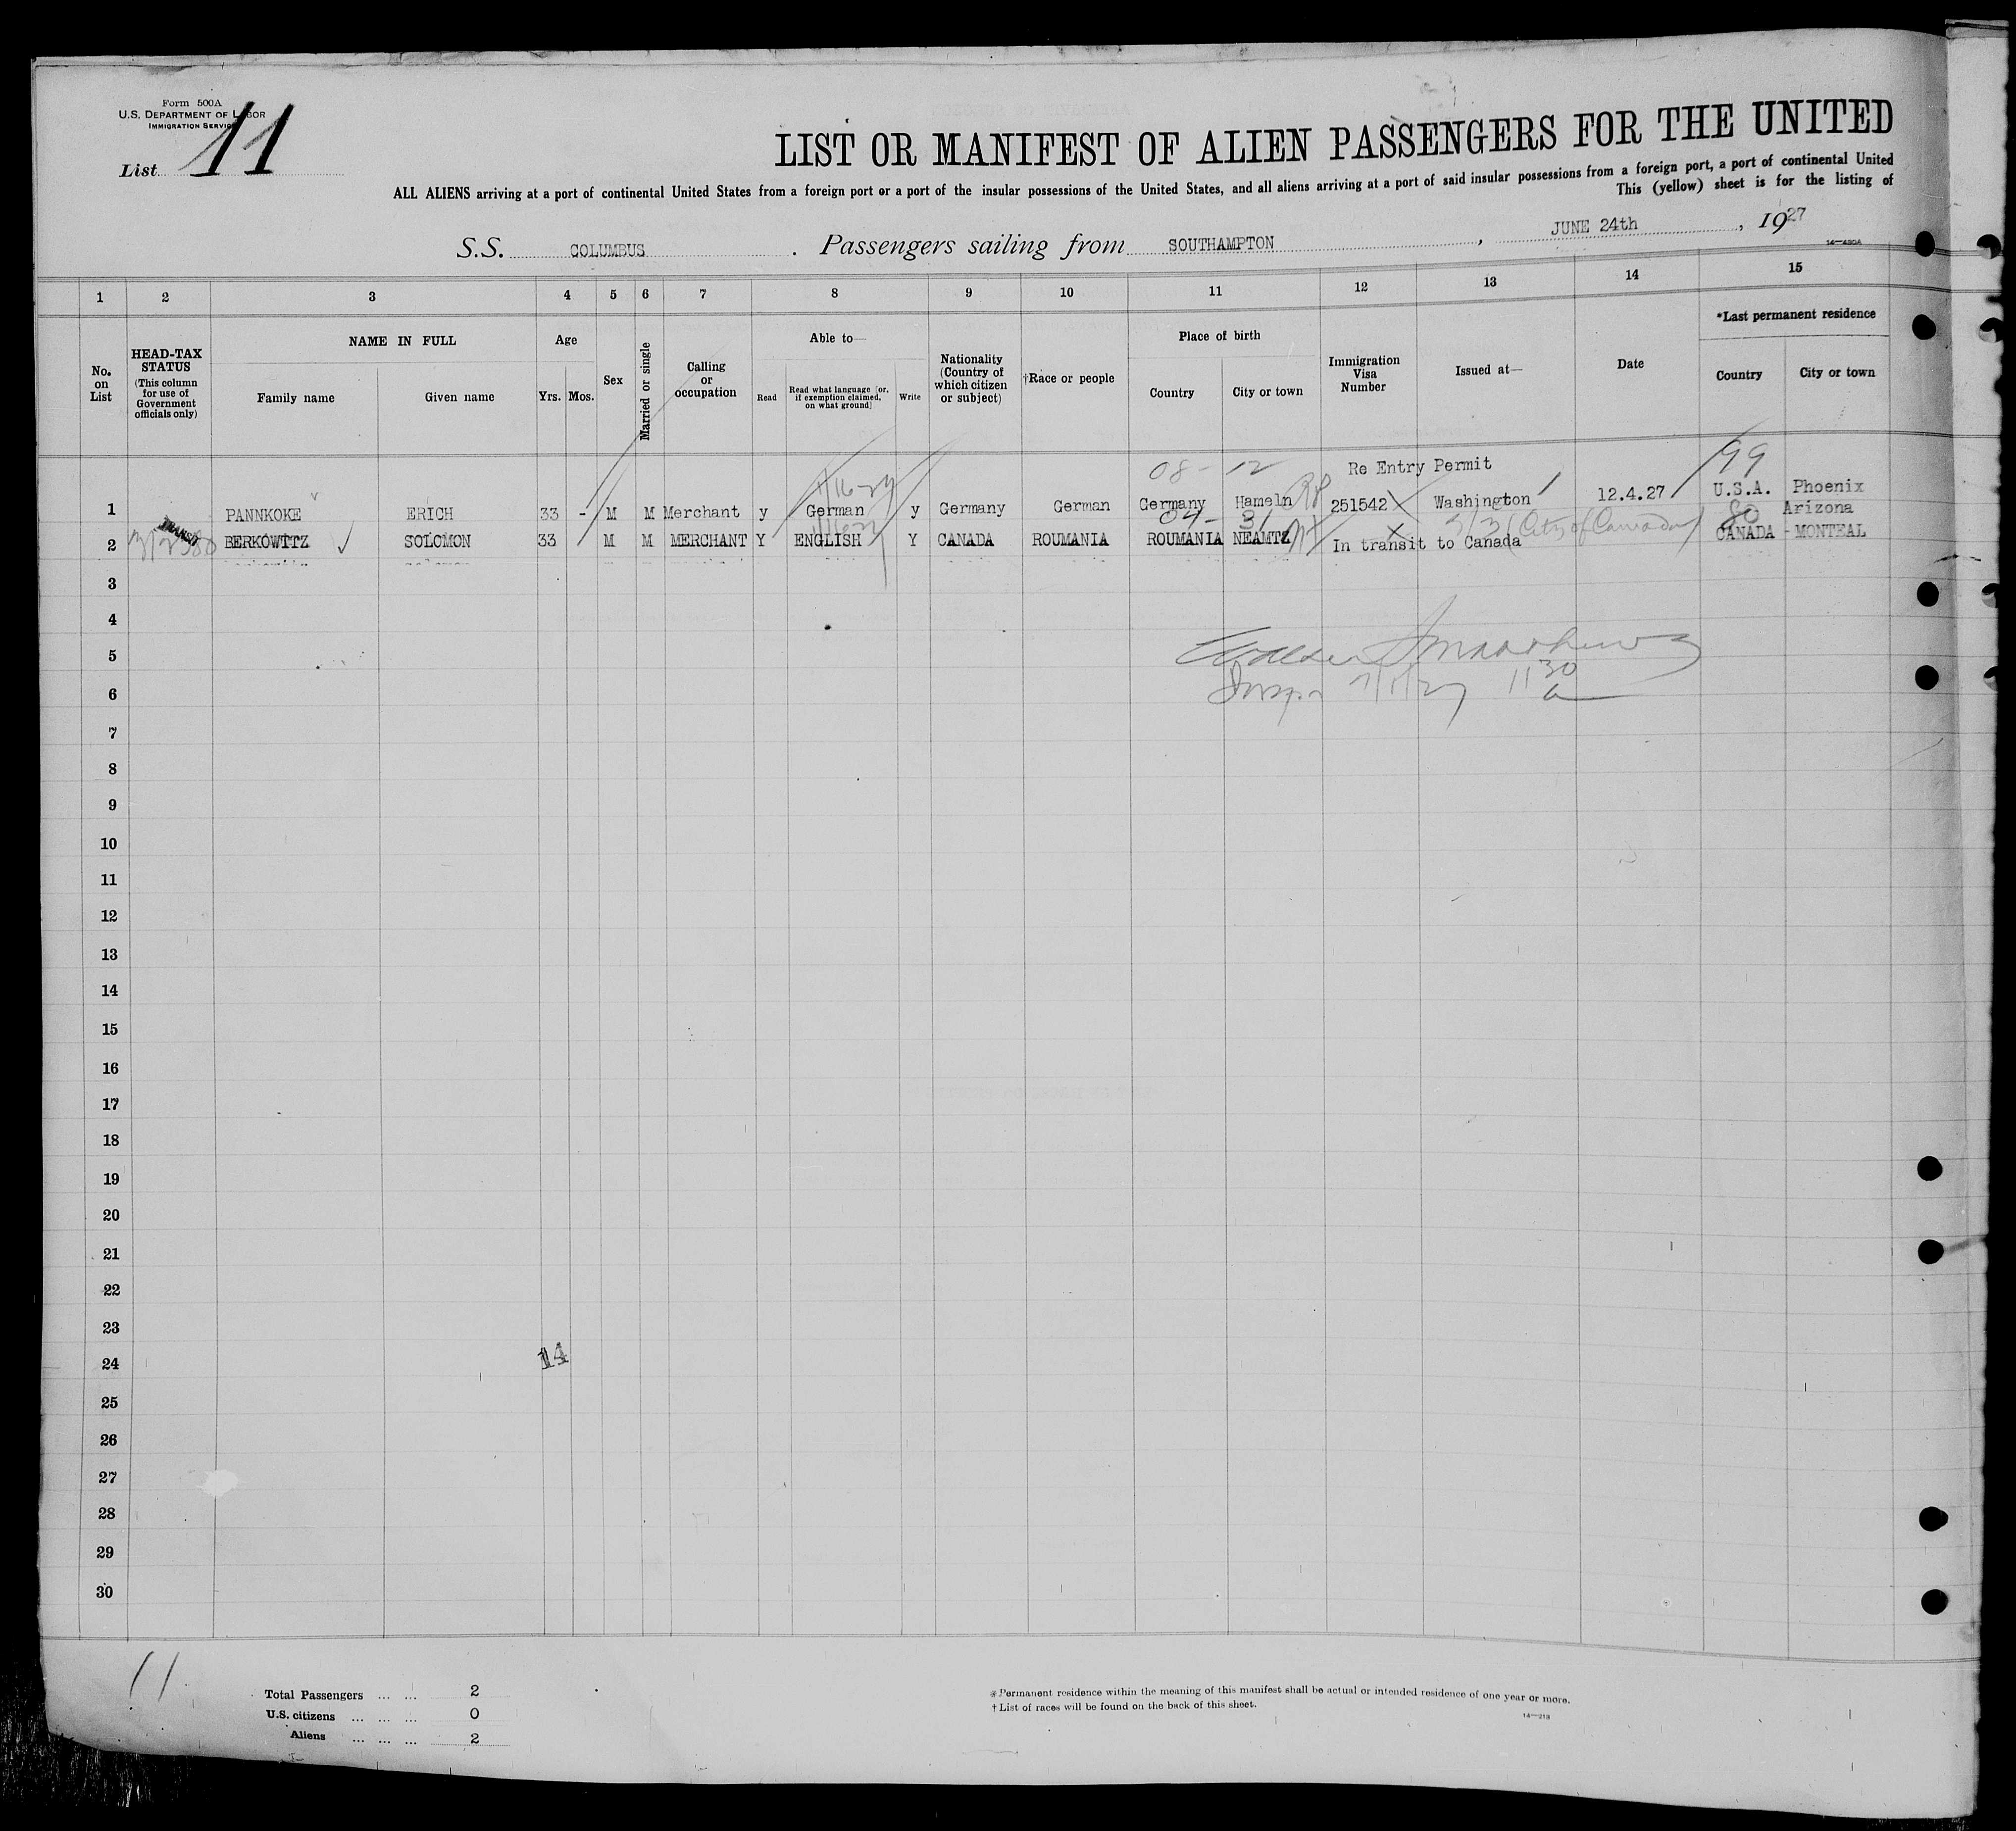 Form 500A
U.S. DEPARTMENT OF LABOR
IMMIGRATION SERVICE
List 11
LIST OR MANIFEST OF ALIEN PASSENGERS FOR THE UNITED
ALL ALIENS arriving at a port of continental United States from a foreign port or a port of the insular possessions of the United States, and all aliens arriving at a port of said insular possessions from a foreign port, a port of continental United
This (yellow) sheet is for the listing of
S.S. COLUMBUS . Passengers sailing from SOUTHAMPTON , JUNE 24th , 1927
14—430A
1 2 3 4 5 6 7 8 9 10 11 12 13 14 15
No. on List
HEAD-TAX STATUS
(This column for use of Government officials only)
NAME IN FULL
Family name Given name
Age
Yrs. Mos.
Sex
Married or single
Calling or occupation
Able to—
Read
Read what language [or, if exemption claimed, on what ground]
Write
Nationality (Country of which citizen or subject)
†Race or people
Place of birth
Country City or town
Immigration Visa Number
Issued at—
Date
*Last permanent residence
Country City or town
08 - 12 Re Entry Permit 99
1 PANNKOKE ERICH 33 - M M Merchant y German y Germany German Germany Hameln 251542 Washington 12.4.27 U.S.A. Phoenix
04 - 31 80 Arizona
2 TRANSIT BERKOWITZ SOLOMON 33 M M MERCHANT Y ENGLISH Y CANADA ROUMANIA ROUMANIA NEAMTZ In transit to Canada CANADA - MONTEAL
3
4
5
6 7/1/27 11 30 a
7
8
9
10
11
12
13
14
15
16
17
18
19
20
21
22
23
24 14
25
26
27
28
29
30
11
Total Passengers ... ... 2
U.S. citizens ... ... ... 0
Aliens ... ... ... 2
* Permanent residence within the meaning of this manifest shall be actual or intended residence of one year or more.
† List of races will be found on the back of this sheet.
14—213